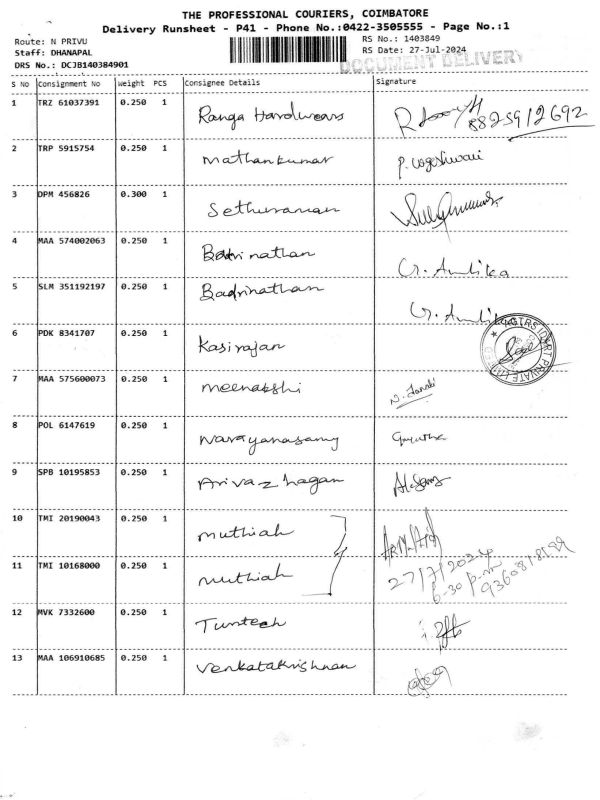 THE PROFESSIONAL COURIERS, COIMBATORE
Delivery Runsheet - P41 - Phone No.:0422-3505555 - Page No.:1
Route: N PRIVU RS No.: 1403849
Staff: DHANAPAL RS Date: 27-Jul-2024
DOCUMENT DELIVERY
DRS No.: DCJB140384901
S No Consignment No Weight PCS Consignee Details Signature
1 TRZ 61037391 0.250 1 Ranga Hardwears 8825912692
2 TRP 5915754 0.250 1 Mathankumar P. Yogeshwari
3 DPM 456826 0.300 1 Sethuraman
4 MAA 574002063 0.250 1 Badrinathan G. Ambika
5 SLM 351192197 0.250 1 Badrinathan G. Ambika
6 PDK 8341707 0.250 1 Kasirajan
7 MAA 575600073 0.250 1 Meenakshi N. Janaki
8 POL 6147619 0.250 1 Narayanasamy
9 SPB 10195853 0.250 1 Arivazhagan
10 TMI 20190043 0.250 1 Muthiah
11 TMI 10168000 0.250 1 Muthiah 27/7/2024
6-30 p.m
12 MVK 7332600 0.250 1 Tuntech
13 MAA 106910685 0.250 1 Venkatakrishnan